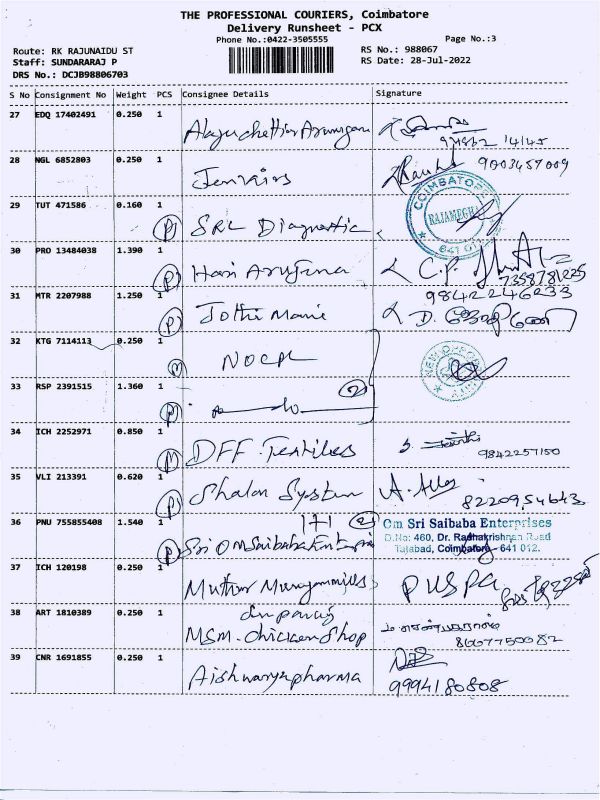 THE PROFESSIONAL COURIERS, Coimbatore
Delivery Runsheet - PCX
Phone No.:0422-3505555
Page No.:3
Route: RK RAJUNAIDU ST
RS No.: 988067
Staff: SUNDARARAJ P
RS Date: 28-Jul-2022
DRS No.: DCJB98806703
S No Consignment No Weight PCS Consignee Details Signature
27 EDQ 17402491 0.250 1
28 NGL 6852803 0.250 1 Jenkins 9003457009
29 TUT 471586 0.160 1 (P) SRL Diagnostic
COIMBATORE RAJAMEGHA 641 01
30 PRO 13484038 1.390 1 (P) Hari C.P.
7358781225
31 MTR 2207988 1.250 1 (P) Jothi Mani 9842246233
D. ஜோதிமணி
32 KTG 7114113 0.250 1 (M) NOCPL
33 RSP 2391515 1.360 1 (P) do (2)
34 ICH 2252971 0.850 1 (M) DFF Textiles
9842257150
35 VLI 213391 0.620 1 (P) Shalom System
8220954643
36 PNU 755855408 1.540 1 1+1 (2)
(P) Sri Om Saibaba Enterpris
Om Sri Saibaba Enterprises
D.No: 460, Dr. Radhakrishnan Road
Tatabad, Coimbatore - 641 012.
37 ICH 120198 0.250 1 Muthu PUSPA
38 ART 1810389 0.250 1
MSM. Chicken Shop 8667750082
39 CNR 1691855 0.250 1 Aishwarya pharma
9994180808